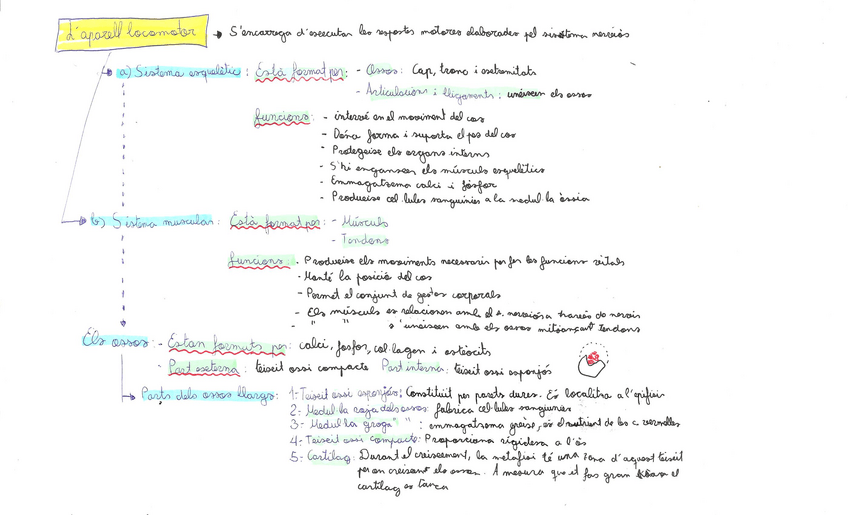 L'aparell locomotor → S'encarrega d'executar les respostes motores elaborades pel sistema nerviós
a) Sistema esquelètic: Està format per: - Ossos: Cap, tronc i extremitats
- Articulacions i lligaments: uneixen els ossos
funcions: - intervé en el moviment del cos
- Dóna forma i suporta el pes del cos
- Protegeixe els organs interns
- S'hi enganxen els músculs esquelètics
- Emmagatzema calci i fósfor
- Produeixe cel·lules sanguinies a la medul·la òssia
b) Sistema muscular: Està format per: - Músculs
- Tendons
funcions: - Produeixe els moviments necessaris per fer les funcions vitals
- Manté la posició del cos
- Permet el conjunt de gestos corporals
- Els músculs es relacionen amb el s. nerviós a través de nervis
- " " s'uneixen amb els ossos mitjançant tendons
Els ossos: - Estan formats per: calci, fosfor, col·lagen i osteòcits
- Part externa: teixit ossi compacte Part interna: teixit ossi esponjós
Parts dels ossos llargs: 1- Teixit ossi esponjós: Constituït per parets dures. Es localitza a l'epifisi
2- Medul·la roja dels ossos: fabrica cel·lules sanguinies
3- Medul·la groga " " : emmagatzema greixe, és el nutrient de les c. vermelles
4- Teixit ossi compacte: Proporciona rigidesa a l'ós
5- Cartílag: Durant el creixement, la metafisi té una zona d'aquest teixit
per on creixent els ossos. A mesura que et fas gran el
cartílag es tanca